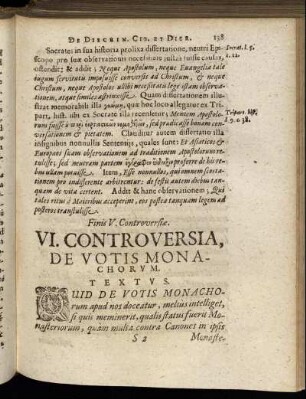 DE DISCRIM. CIB. ET DIER. 138
Socrates in sua historia prolixa dissertatione, neutri Epi-
scopo pro suæ observationis necessitate
ostendit; & addit: Neque Apostolum, neque Evangelia tale
jugum servitutis imposuisse conversis ad Christum, & neque
Christum, neque Apostolos ulli necessitatis lege istam observa-
tionem, atque similes astrinxisse. Quam dissertationem
illustrat memorabili illa
part. hist. ubi ex Socrate illa recensetur: Mentem Apostolo-
rum fuisse sed pradicasse bonam con-
versationem & pietatem. Clauditur autem dissertatio illa
insignibus nonnullis Sententiis, quales sunt: Et Asiaticos &
Europæos suam observationem ad traditionem Apostolorum re-
tulisse; sed neutram partem proferre de hi re-
bus ullam potuisse. Item, Esse nonnullos, qui omnem scorta-
tionem pro indifferente arbitrentur: de festis autem diebus tan-
quam de vita certent. Addit & hanc observationem; Qui
tales ritus à Majoribus acceperint, eos postea tanquam legem ad
posteros transtulisse.
Finis V. Controversiæ.
VI. CONTROVERSIA,
DE VOTIS MONA-
CHORVM.
TEXTVS.
QUID DE VOTIS MONACHO-
rum apud nos doceatur, melius intelliget,
si quis meminerit, qualis status fuerit Mo-
nasteriorum, quàm multa contra Canones in ipsis
S 2 Monaste-